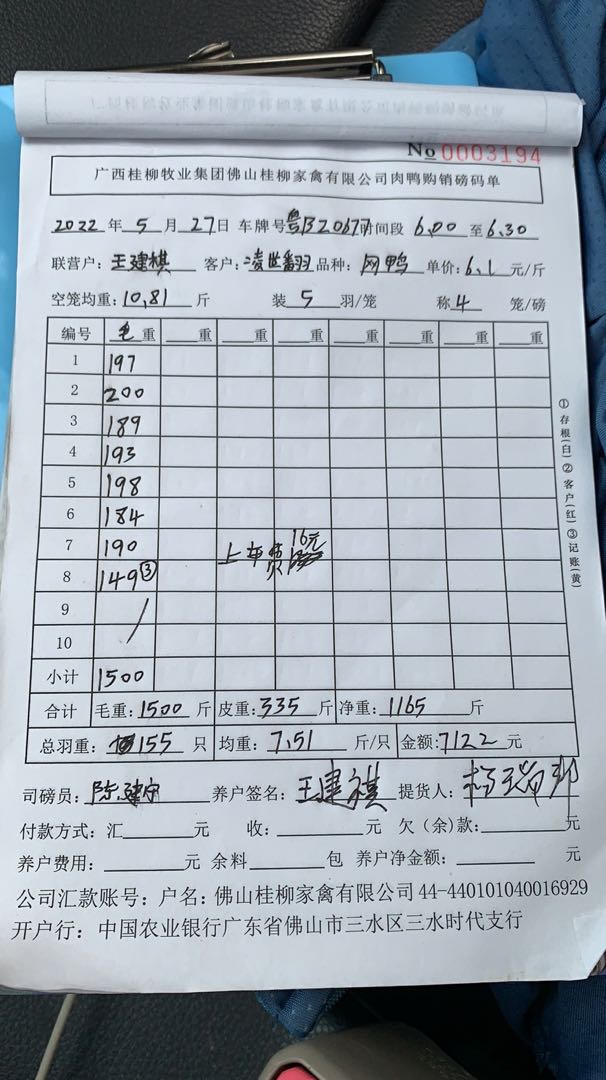 No 0003194
广西桂柳牧业集团佛山桂柳家禽有限公司肉鸭购销磅码单
2022 年 5 月 27 日 车牌号 粤B20677 时间段 6.00 至 6.30
联营户: 王建棋 客户: 凌世翻 品种: 网鸭 单价: 6.1 元/斤
空笼均重: 10.81 斤 装 5 羽/笼 称 4 笼/磅
编号 毛重 重 重 重 重 重 重 重
1 197
2 200
3 189
4 193
5 198
6 184
7 190 上车费 16元
8 149 ③
9
10
小计 1500
合计 毛重: 1500 斤 皮重: 335 斤 净重: 1165 斤
总羽重: 155 只 均重: 7.51 斤/只 金额: 7122 元
司磅员: 陈建宁 养户签名: 王建祺 提货人:
付款方式: 汇 元 收: 元 欠(余)款: 元
养户费用: 元 余料 包 养户净金额: 元
公司汇款账号: 户名: 佛山桂柳家禽有限公司 44-440101040016929
开户行: 中国农业银行广东省佛山市三水区三水时代支行
①存根(白)②客户(红)③记账(黄)